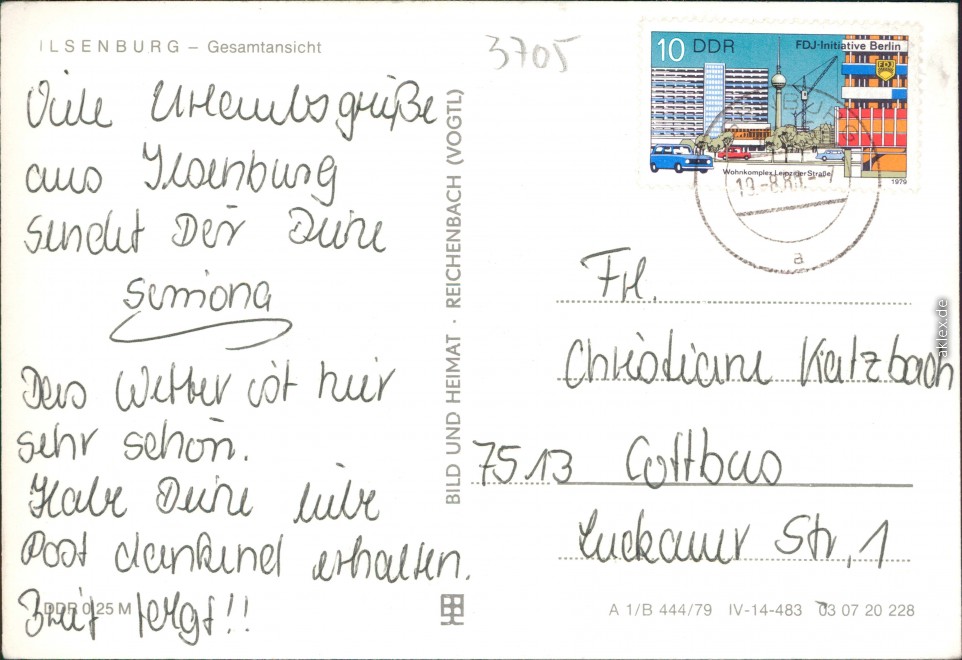 ILSENBURG – Gesamtansicht
Viele Urlaubsgrüße
aus Ilsenburg
sendet Dir Deine
Simona
Das Wetter ist hier
sehr schön.
Habe Deine liebe
Post dankend erhalten.
Brief folgt!!
DDR 0,25 M
BILD UND HEIMAT · REICHENBACH (VOGTL)
3705
10 DDR
FDJ-Initiative Berlin
FDJ
Wohnkomplex Leipziger Straße
1979
a
Frl.
Christiane Katzbach
7513 Cottbus
Luckauer Str. 1
A 1/B 444/79 IV-14-483 03 07 20 228
aklex.de